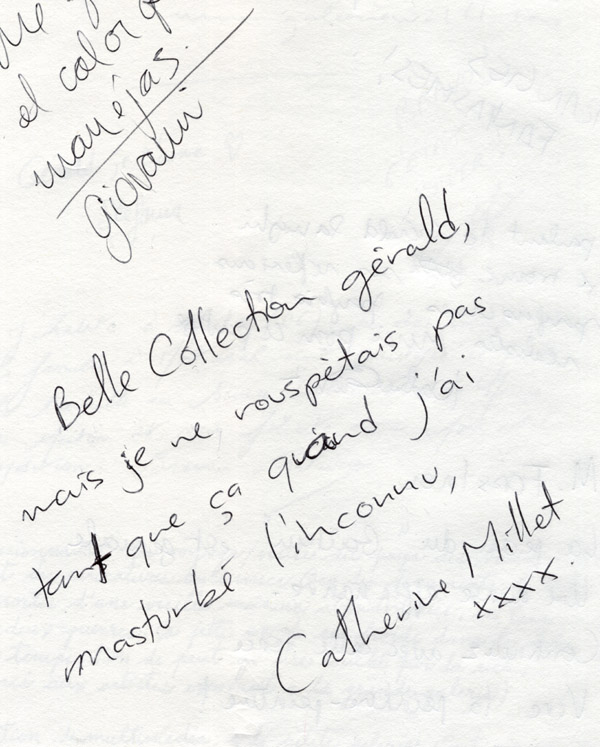 el color q
manéjas.
Giovanni
Belle Collection gérald,
mais je ne rouspétais pas
tant que ça quand j'ai
masturbé l'inconnu,
Catherine Millet
xxxx.